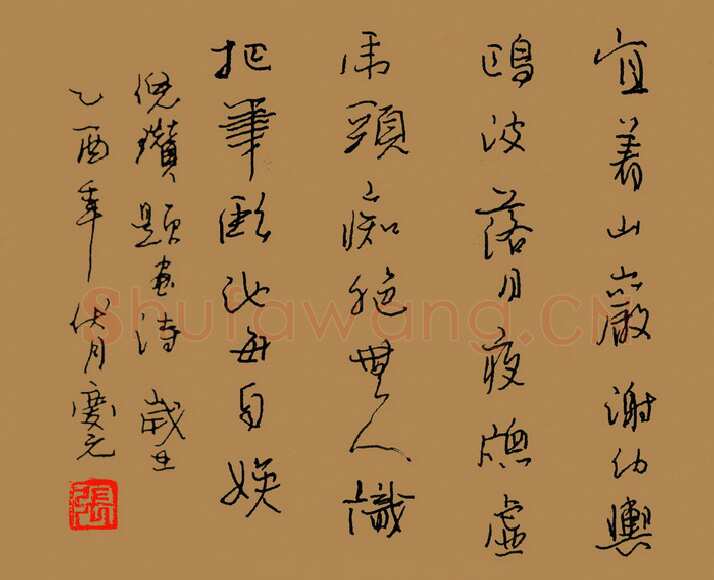 宜着山巖謝幼輿
鷗波落月夜窓虛
虎頭痴絶無人識
把筆臨池每自娛
倪瓚題畫詩 歲在
乙酉年伏月慶元
張
Shufawang.CN